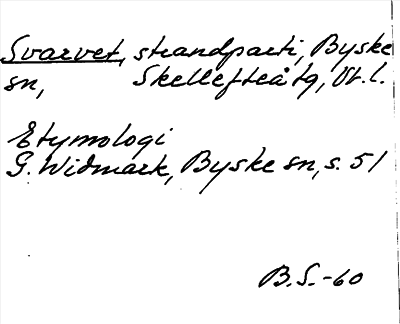 Svarvet, strandparti, Byske
sn, Skellefteå tg, Vb. l.
Etymologi
G. Widmark, Byske sn, s. 51
B.S.-60